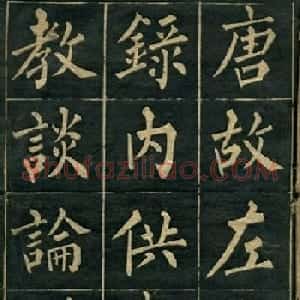 唐故左
錄內供
教談論
Shufaziliao.com